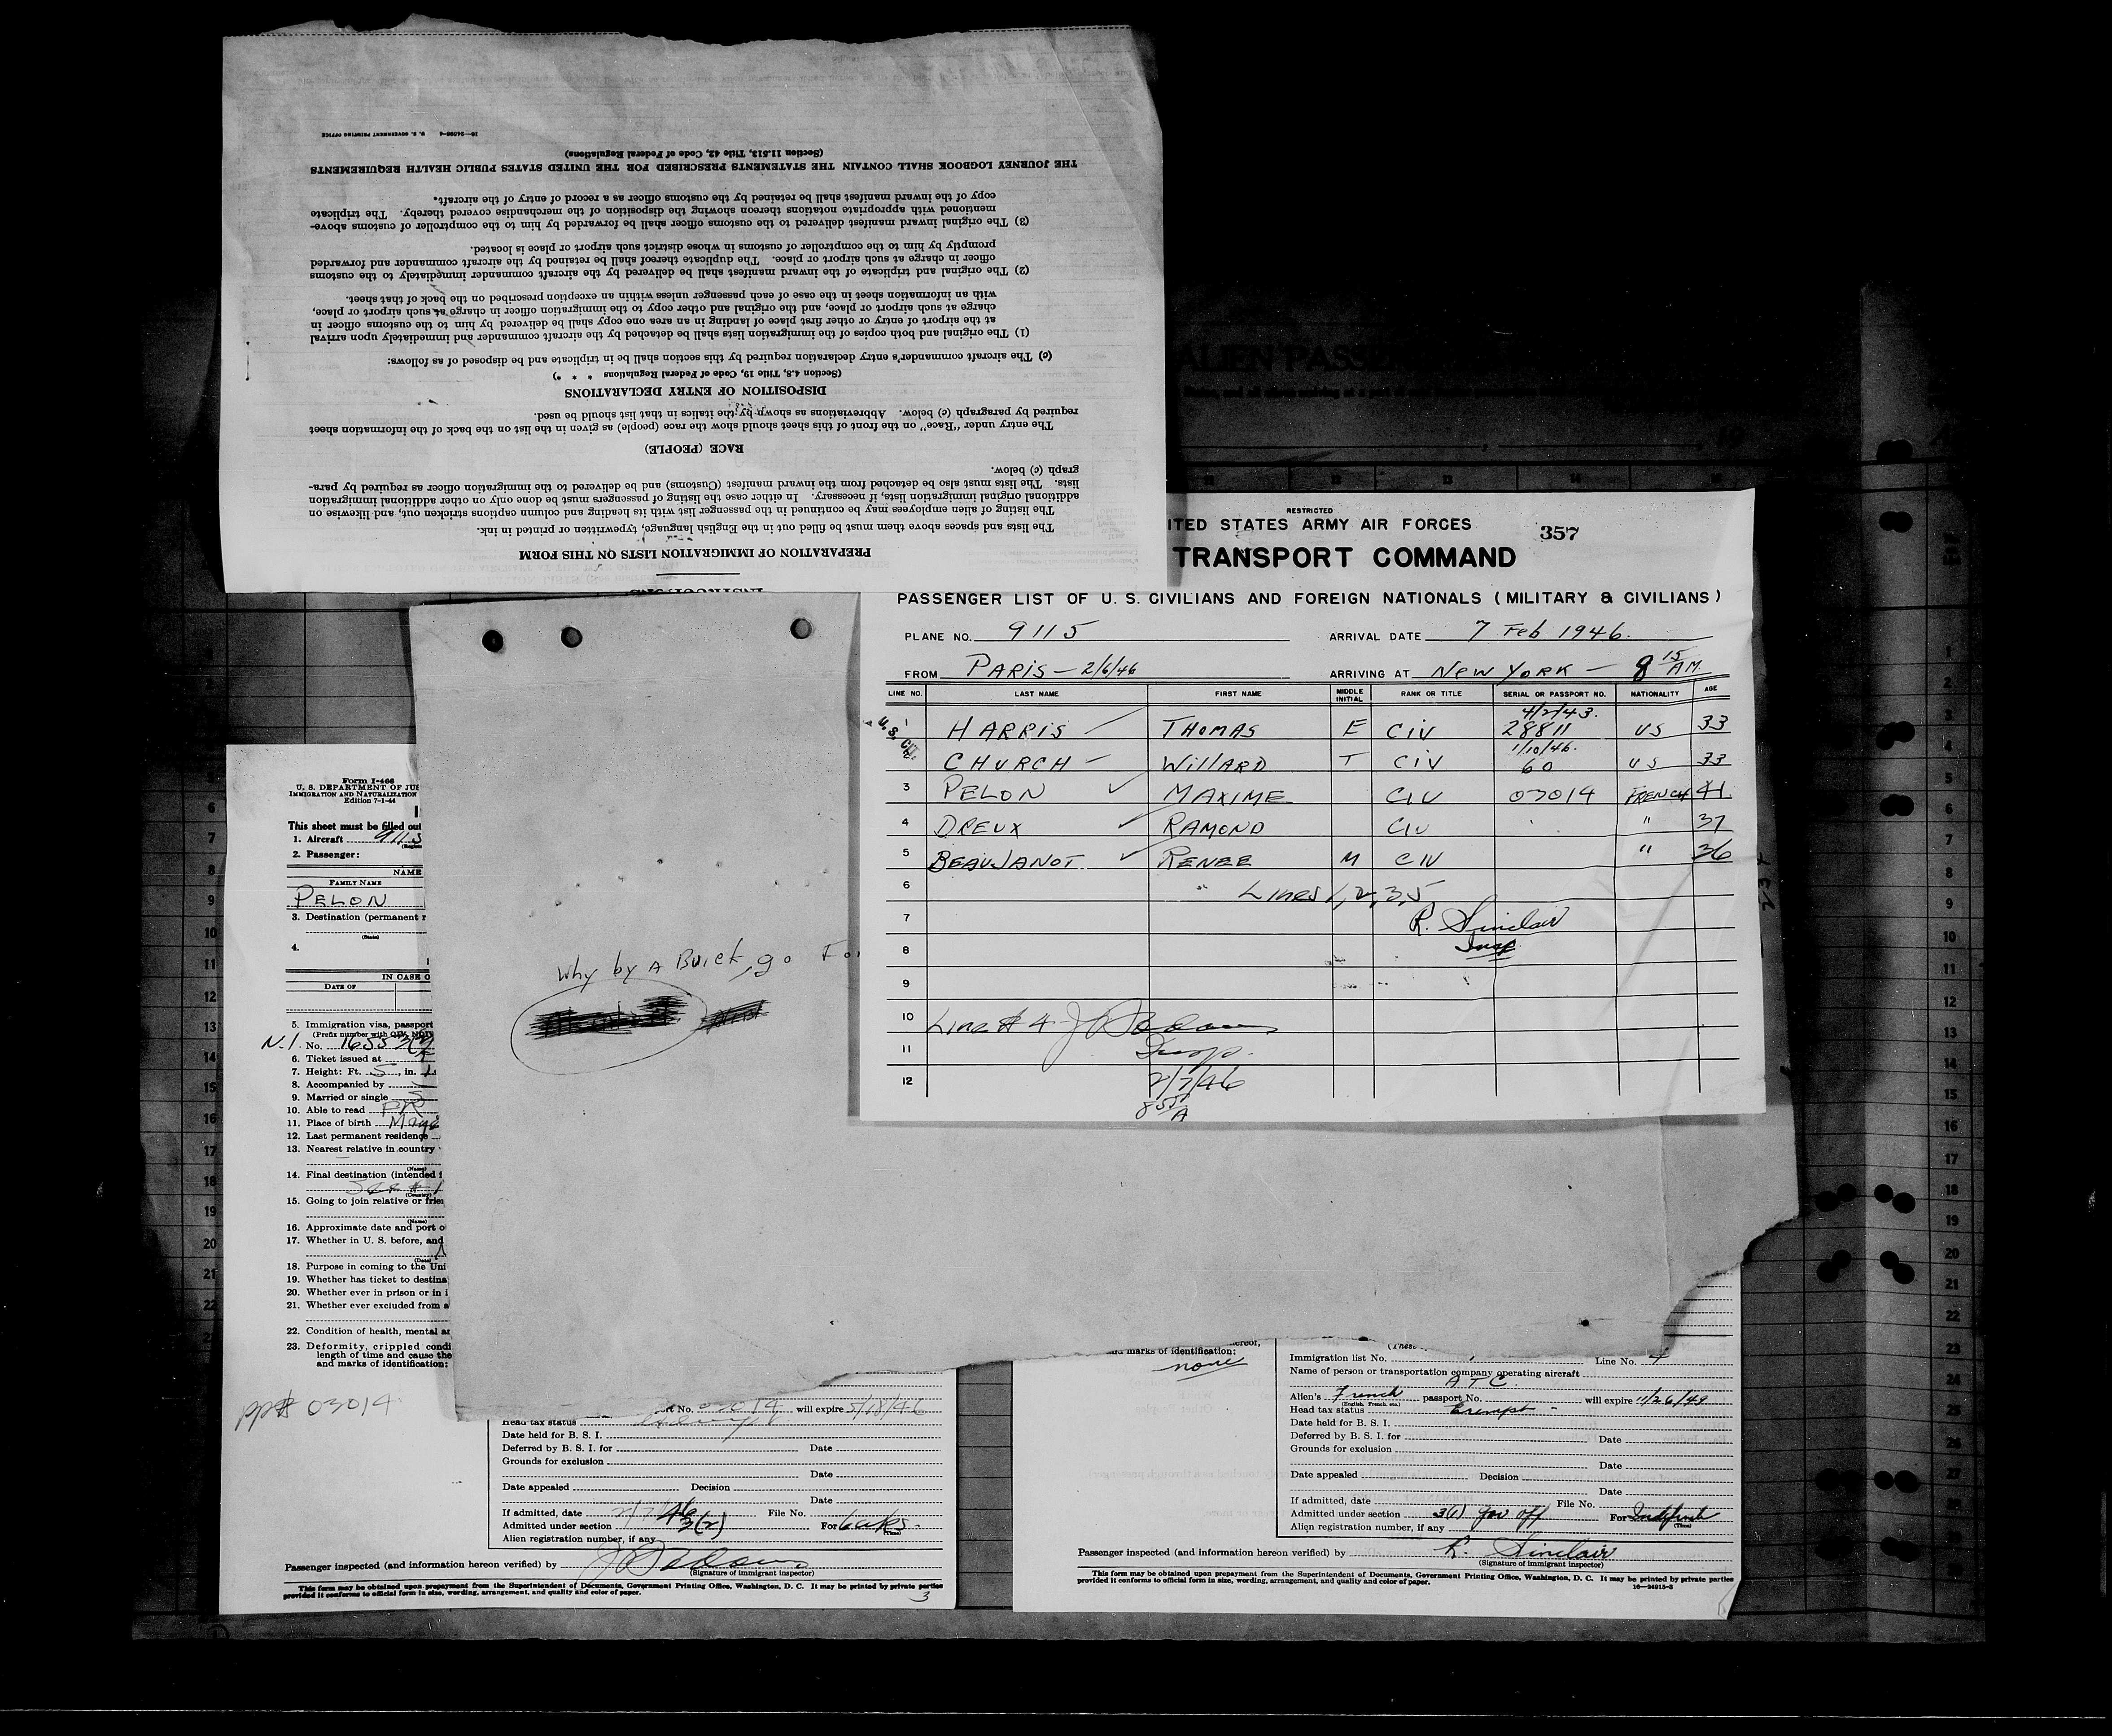 16—24596-4 U. S. GOVERNMENT PRINTING OFFICE
(Section 11.513, Title 42, Code of Federal Regulations)
THE JOURNEY LOGBOOK SHALL CONTAIN THE STATEMENTS PRESCRIBED FOR THE UNITED STATES PUBLIC HEALTH REQUIREMENTS
copy of the inward manifest shall be retained by the customs officer as a record of entry of the aircraft.
mentioned with appropriate notations thereon showing the disposition of the merchandise covered thereby. The triplicate
(3) The original inward manifest delivered to the customs officer shall be forwarded by him to the comptroller of customs above-
promptly by him to the comptroller of customs in whose district such airport or place is located.
officer in charge at such airport or place. The duplicate thereof shall be retained by the aircraft commander and forwarded
(2) The original and triplicate of the inward manifest shall be delivered by the aircraft commander immediately to the customs
with an information sheet in the case of each passenger unless within an exception prescribed on the back of that sheet.
charge at such airport or place, and the original and other copy to the immigration officer in charge at such airport or place,
at the airport of entry or other first place of landing in an area one copy shall be delivered by him to the customs officer in
(1) The original and both copies of the immigration lists shall be detached by the aircraft commander and immediately upon arrival
(c) The aircraft commander's entry declaration required by this section shall be in triplicate and be disposed of as follows:
(Section 4.8, Title 19, Code of Federal Regulations * * *)
DISPOSITION OF ENTRY DECLARATIONS
required by paragraph (c) below. Abbreviations as shown by the italics in that list should be used.
The entry under "Race" on the front of this sheet should show the race (people) as given in the list on the back of the information sheet
RACE (PEOPLE)
graph (c) below.
lists. The lists must also be detached from the inward manifest (Customs) and be delivered to the immigration officer as required by para-
additional original immigration lists, if necessary. In either case the listing of passengers must be done only on other additional immigration
The listing of alien employees may be continued in the passenger list with its heading and column captions stricken out, and likewise on
The lists and spaces above them must be filled out in the English language, typewritten or printed in ink.
PREPARATION OF IMMIGRATION LISTS ON THIS FORM
INSTRUCTIONS
ALIEN PASS
RESTRICTED
ITED STATES ARMY AIR FORCES 357
TRANSPORT COMMAND
PASSENGER LIST OF U. S. CIVILIANS AND FOREIGN NATIONALS (MILITARY & CIVILIANS)
PLANE NO. 9115 ARRIVAL DATE 7 Feb 1946.
FROM PARIS — 2/6/46 ARRIVING AT NEW YORK — 8 15 A.M.
LINE NO. LAST NAME FIRST NAME MIDDLE INITIAL RANK OR TITLE SERIAL OR PASSPORT NO. NATIONALITY AGE
U.S. Cit.
4/2/43.
1 HARRIS THOMAS E CIV 28811 US 33
1/10/46.
2 CHURCH WILLARD T CIV 60 US 33
3 PELON MAXIME CIV 03014 FRENCH 41
4 DREUX RAMOND CIV " 37
5 BEAUJANOT RENEE M CIV " 36
6 Lines 1,2,3,5
7 R. Sinclair
8 Insp
9
10 Line # 4
11 Insp.
12 2/7/46
8 55 A
Why by A Buick, go Fo
Form I-466
U. S. DEPARTMENT OF JUS
IMMIGRATION AND NATURALIZATION
Edition 7-1-44
This sheet must be filled out
1. Aircraft 9115
2. Passenger:
NAME
FAMILY NAME
PELON
3. Destination (permanent r
(State)
4.
IN CASE O
DATE OF
5. Immigration visa, passport
N.I. No. 16553
6. Ticket issued at
7. Height: Ft. 5, in.
8. Accompanied by
9. Married or single S
10. Able to read FR
11. Place of birth
12. Last permanent residence
13. Nearest relative in country
(Name)
14. Final destination (intended
(Country)
15. Going to join relative or frie
(Name)
16. Approximate date and port o
17. Whether in U. S. before, and
(Date)
18. Purpose in coming to the Uni
19. Whether has ticket to destina
20. Whether ever in prison or in i
21. Whether ever excluded from a
22. Condition of health, mental an
23. Deformity, crippled condi
length of time and cause the
and marks of identification:
pp# 03014
ort No. 03014 will expire 5/18/46
Head tax status
Date held for B. S. I.
Deferred by B. S. I. for Date
Grounds for exclusion
Date
Date appealed Decision
Date
If admitted, date 2/7/46 File No.
Admitted under section 3(2) For 6 wks.
(Time)
Alien registration number, if any
Passenger inspected (and information hereon verified) by
(Signature of immigrant inspector)
This form may be obtained upon prepayment from the Superintendent of Documents, Government Printing Office, Washington, D. C. It may be printed by private parties
provided it conforms to official form in size, wording, arrangement, and quality and color of paper.
3
hereof,
and marks of identification:
none
Immigration list No. Line No. 4
Name of person or transportation company operating aircraft
ATC
Alien's French passport No. will expire 11/26/49
(English, French, etc.)
Head tax status Exempt -
Date held for B. S. I.
Deferred by B. S. I. for Date
Grounds for exclusion
Date
Date appealed Decision
Date
If admitted, date File No.
Admitted under section 3(1) gov off For Indefinite
(Time)
Alien registration number, if any
Passenger inspected (and information hereon verified) by R. Sinclair
(Signature of immigrant inspector)
This form may be obtained upon prepayment from the Superintendent of Documents, Government Printing Office, Washington, D. C. It may be printed by private parties
provided it conforms to official form in size, wording, arrangement, and quality and color of paper.
16—24915-3